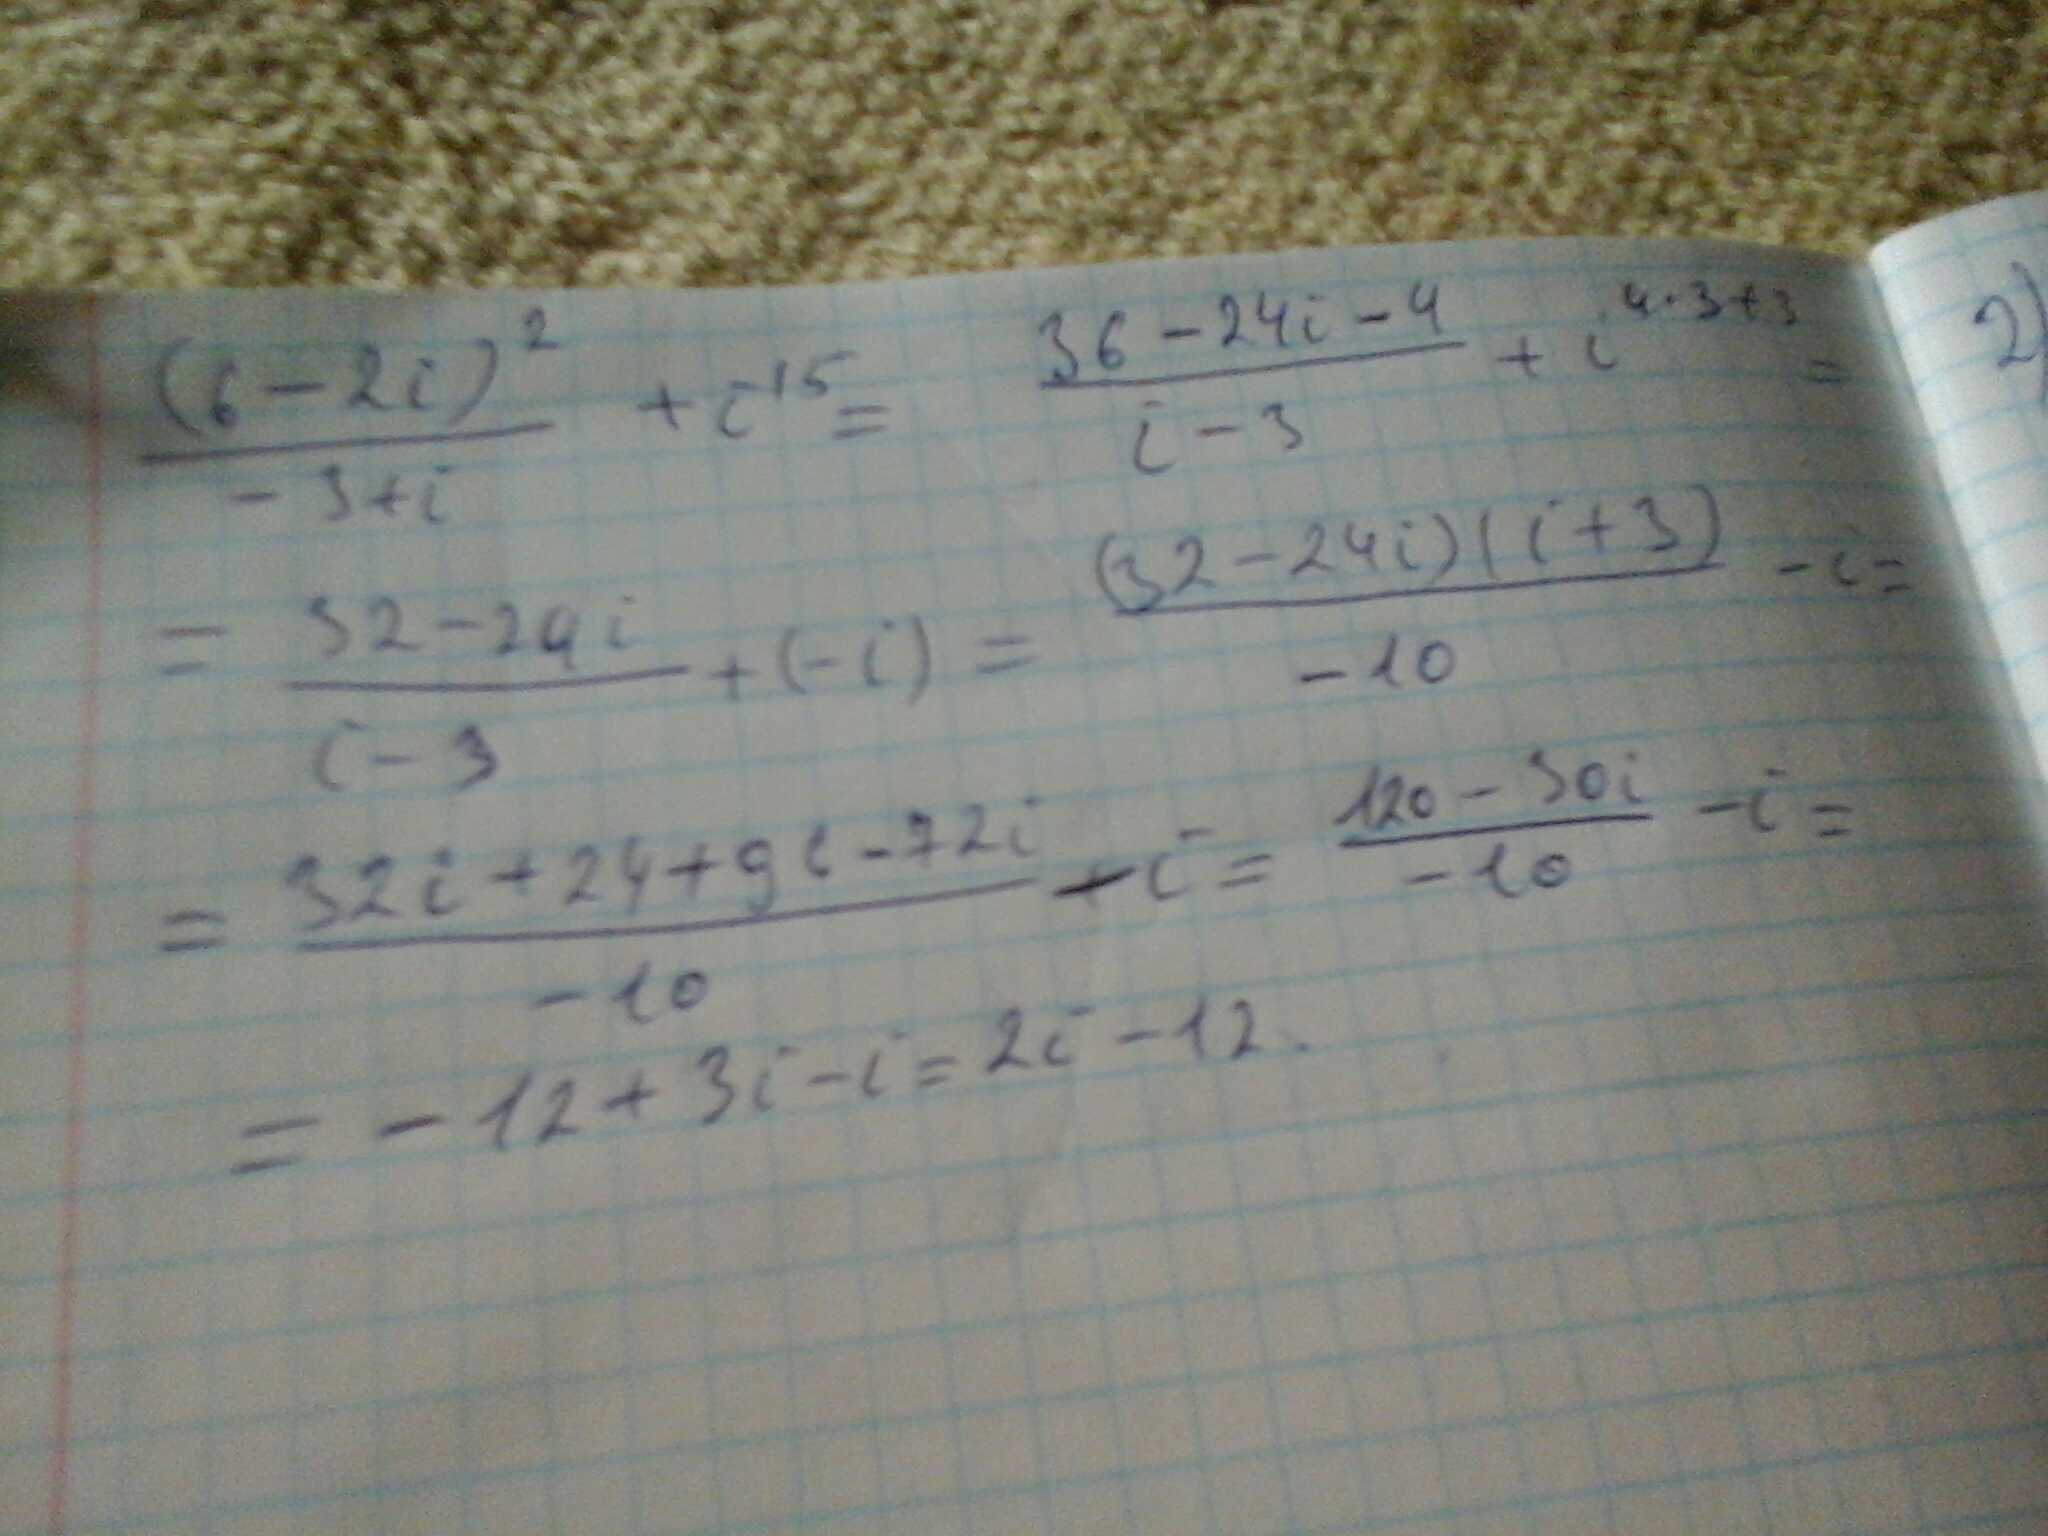 (6-2i)²/(-3+i) + i¹⁵ = (36-24i-4)/(i-3) + i^(4·3+3) =
= (32-24i)/(i-3) + (-i) = (32-24i)(i+3)/(-10) - i =
= (32i+24+9i-72i)/(-10) - i = (120-30i)/(-10) - i =
= -12+3i-i = 2i-12.
2)